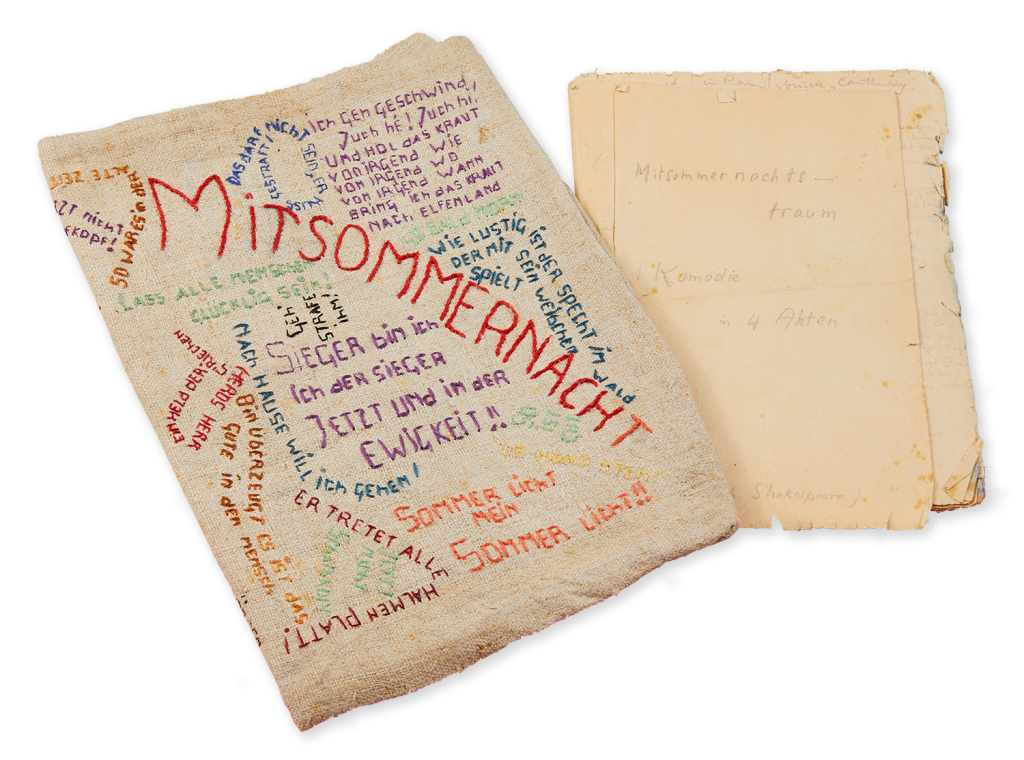 ICH GEH GESCHWIND,
JUCH HE! JUCH HI!
UND HOL DAS KRAUT
VON IRGEND WIE
VON IRGEND WO
VON IRGEND WANN
BRING ICH DAS KRAUT
NACH ELFENLAND
DAS DARF NICHT SEIN ER
MUSS
GESTRAFT
SO WAR ES IN DER
ALTE ZEIT
JETZT NICHT
MITSOMMERNACHT
WIE LUSTIG IST DER SPECHT IM WALD
DER MIT SEIN WEIBCHEN
SPIELT
LASS ALLE MENSCHEN
GLÜCKLIG SEIN!
GEH!
STRAFE
IHM!
SIEGER BIN ICH
ICH DEN SIEGER
JETZT UND IN DER
EWIGKEIT!!
EIN HELD DER
GRIECHEN
HEROS HERR
NACH HAUSE WILL ICH GEHEN!
BIN ÜBERZEUGT ES IST DAS
GUTE IN DEN MENSCH
SOMMER LICHT
MEIN
SOMMER LICHT!!
ER TRETET ALLE
HALMEN PLATT!
Mitsommernachts –
traum
Komödie
in 4 Akten
Shakespeare)